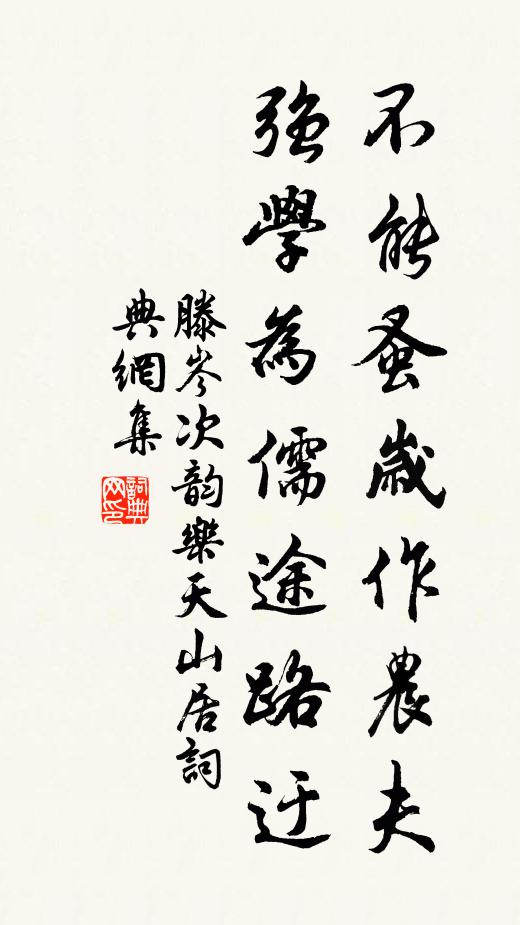 不能蚤歲作農夫
強學為儒途路迂
滕岑次韵樂天山居詞
典網集
詞典网印